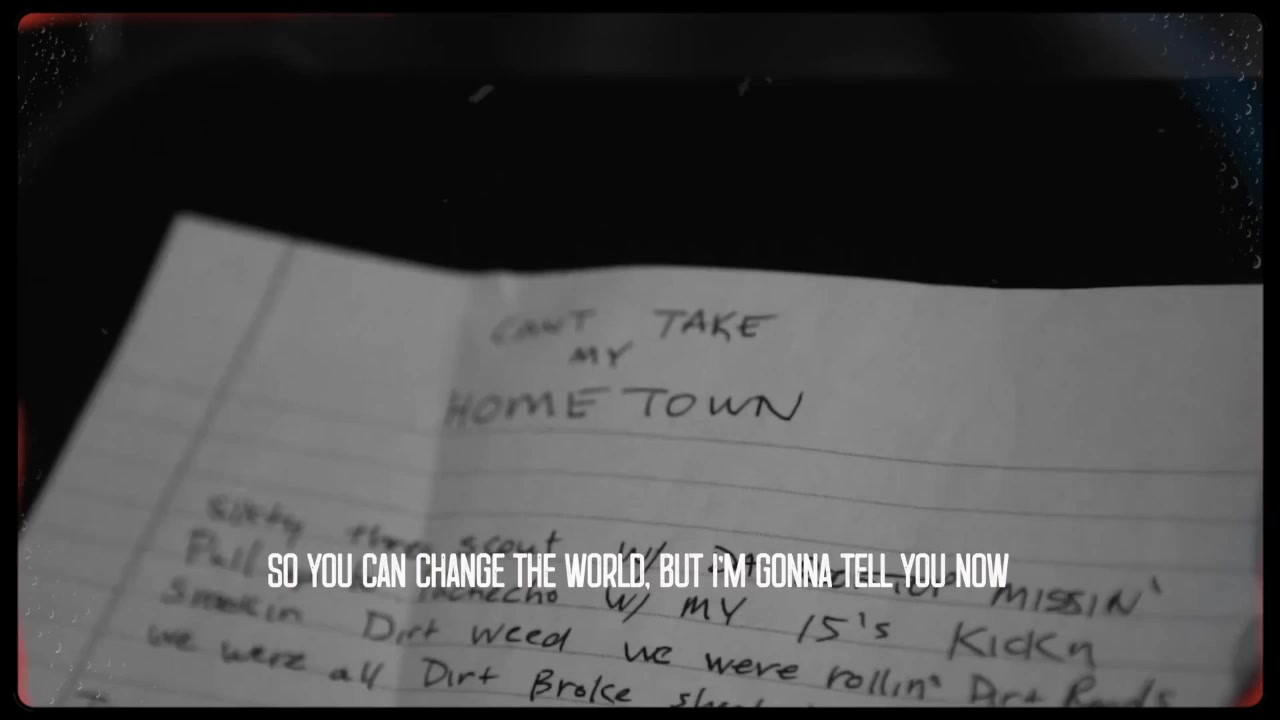 CANT TAKE
MY
HOMETOWN
Sixty three scout W/ missin'
Pull W/ MY 15's Kickn
SO YOU CAN CHANGE THE WORLD, BUT I'M GONNA TELL YOU NOW
Smokin Dirt weed we were rollin' Dirt Roads
we were all Dirt Broke